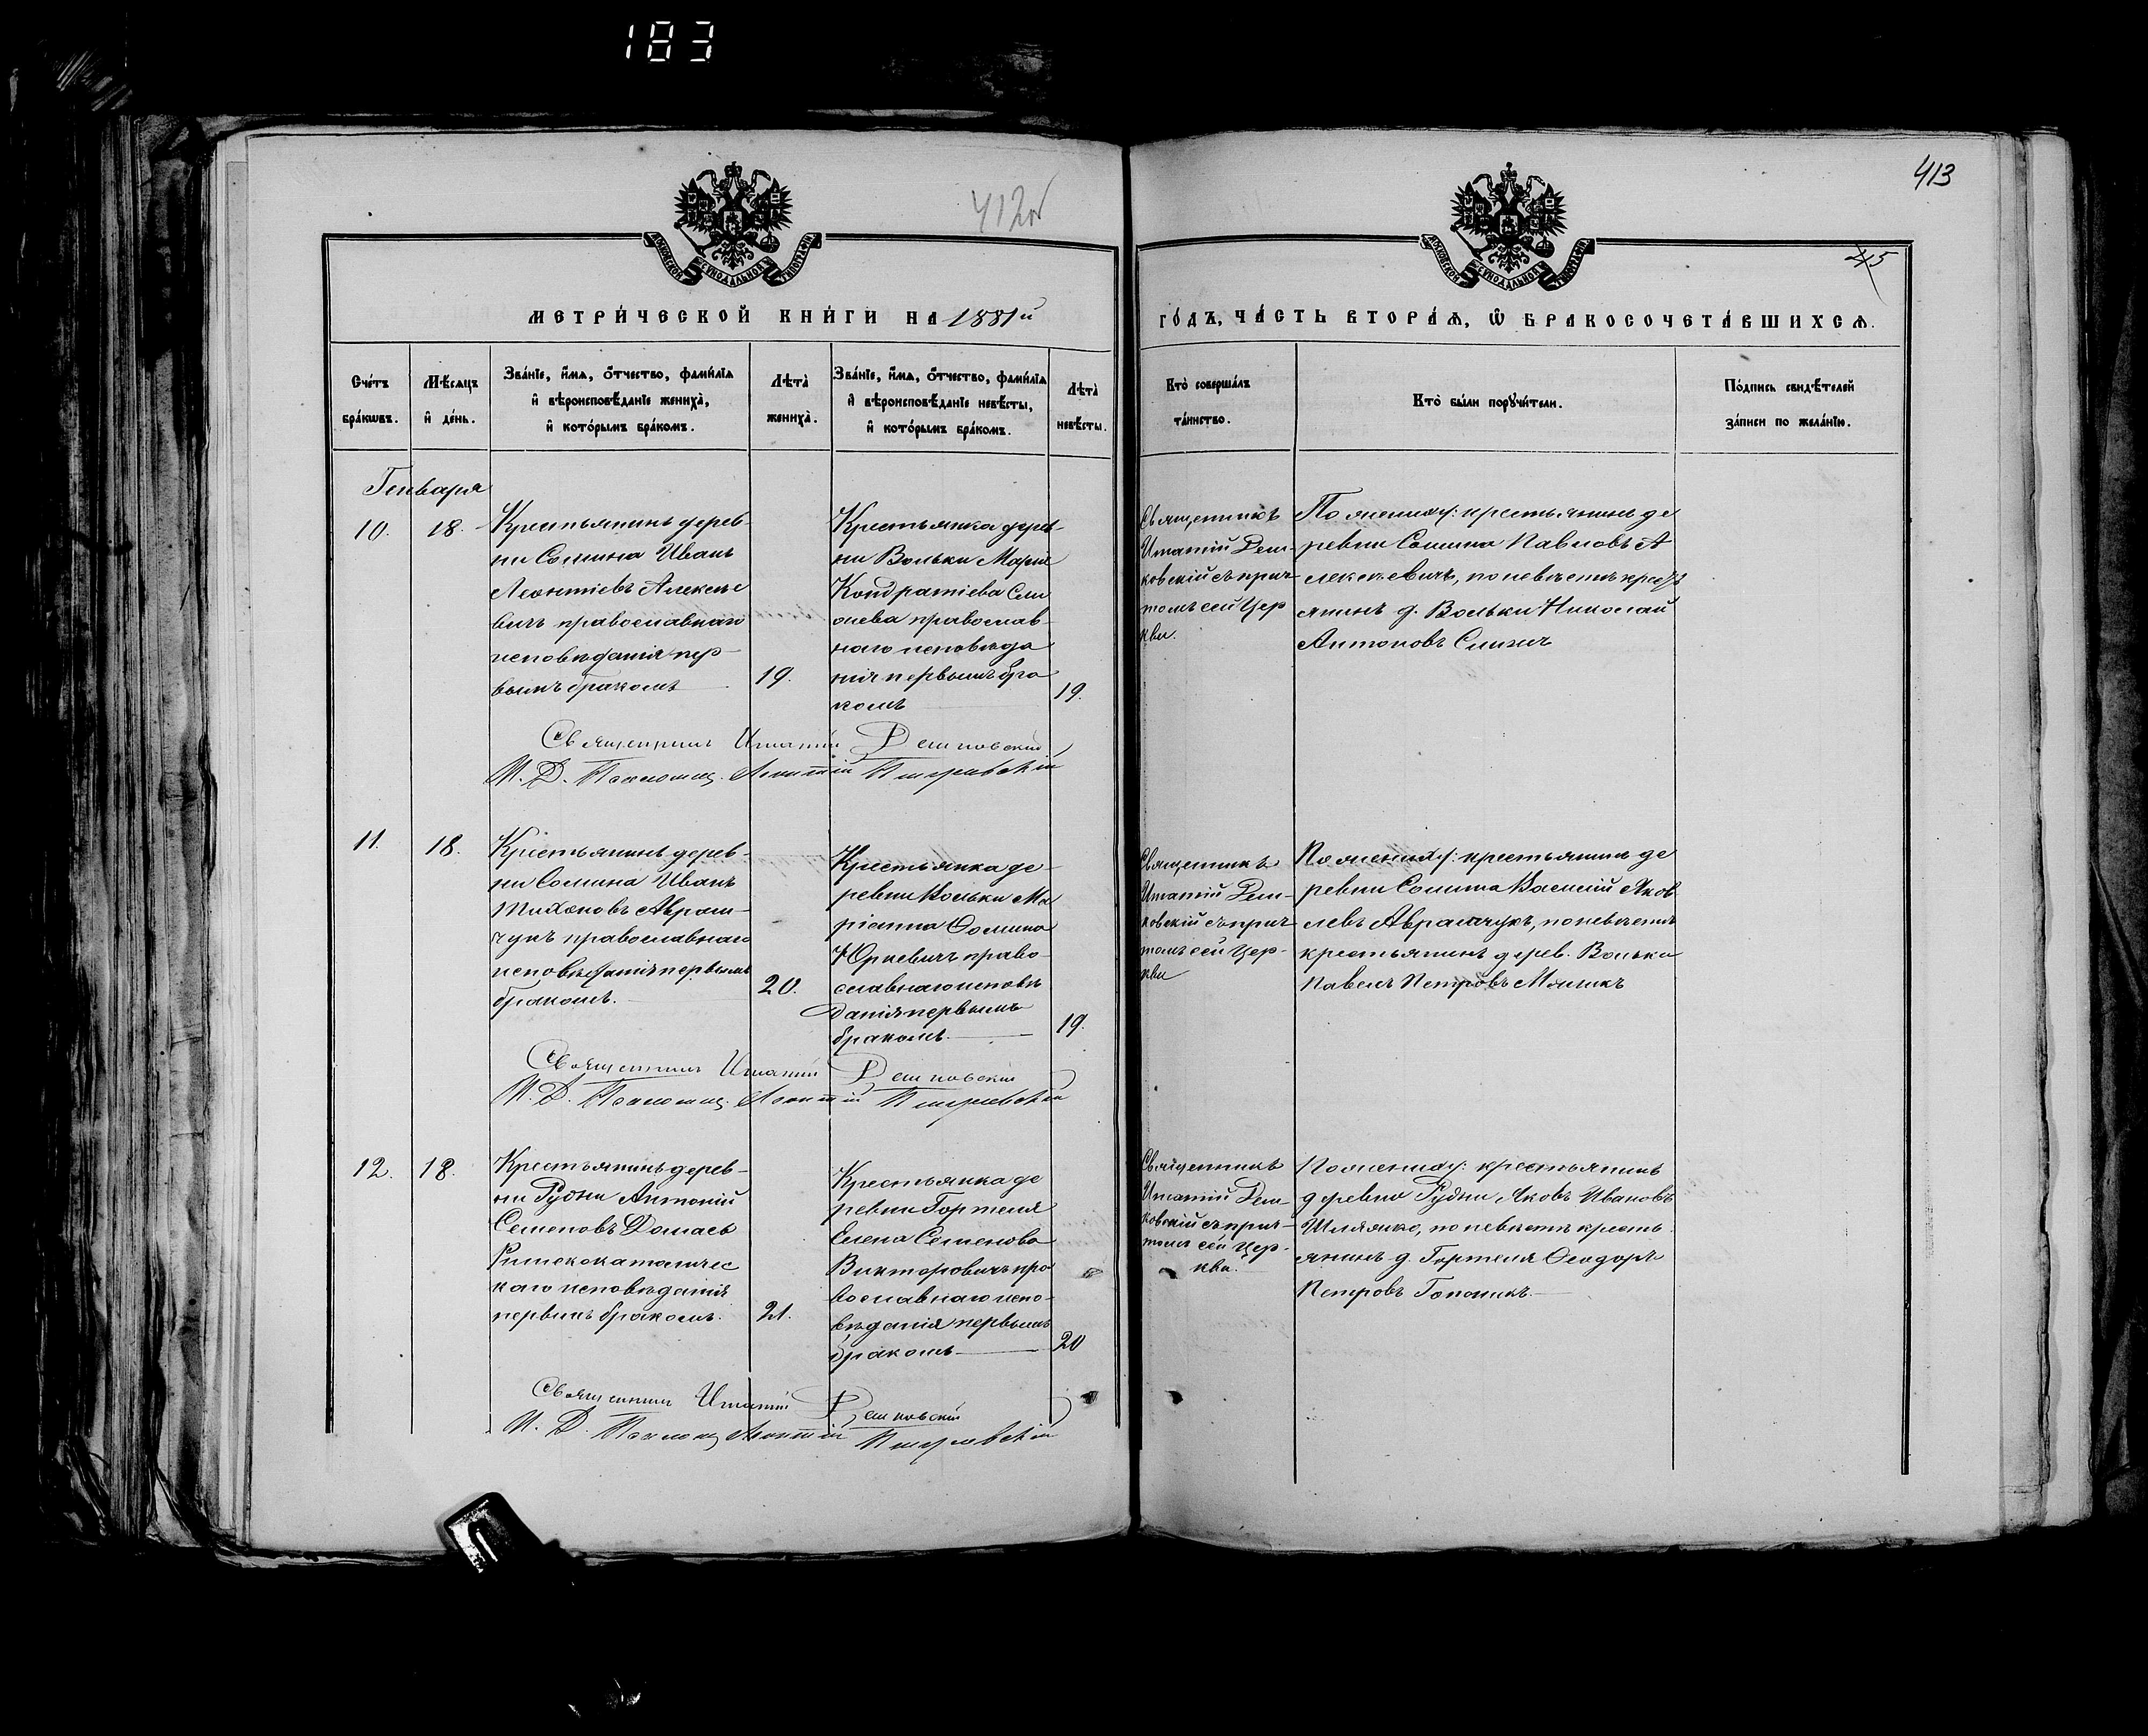 183
412об
413
45
МОСКОВСКОЙ СѴНОДАЛЬНОЙ ТИПОГРАФІИ
МОСКОВСКОЙ СѴНОДАЛЬНОЙ ТИПОГРАФІИ
МЕТРИ́ЧЕСКОЙ КНИ́ГИ НА 1881й
ГО́ДЪ, ЧА́СТЬ ВТОРА́Ѧ, Ѽ БРАКОСОЧЕТА́ВШИХСѦ.
Сче́тъ бра́кѡвъ.
Мѣ́сѧцъ и҆ де́нь.
Зва́нїе, и҆́мѧ, ѻ҆́тчество, фами́лїѧ
и҆ вѣроисповѣ́данїе жениха̀,
и҆ кото́рымъ бра́комъ.
Лѣта̀ жениха̀.
Зва́нїе, и҆́мѧ, ѻ҆́тчество, фами́лїѧ
и҆ вѣроисповѣ́данїе невѣ́сты,
и҆ кото́рымъ бра́комъ.
Лѣта̀ невѣ́сты.
Кто̀ соверша́лъ
та́инство.
Кто̀ бы́ли порꙋчи́тели.
По́дпись свидѣ́телей
за́писи по жела́нїю.
Генваря
10.
18.
Крестьянинъ дерев-
ни Сомина Иванъ
Леонтіевъ Алексѣе
вичъ православнаго
исповѣданія пер-
вымъ бракомъ
19.
Крестьянка дерев-
ни Вольки Марія
Кондратіева
православ-
наго исповѣда
нія первымъ бра
комъ
19.
Священникъ
Игнатій
ковскій съ прич
томъ сей Цер
кви.
По женихѣ: крестьянинъ де
ревни Сомина Павловъ А
лексѣевичъ, по невѣстѣ крест
янинъ д. Вольки Николай
Антоновъ
Священникъ Игнатій
И. Д. Псаломщ.
11.
18.
Крестьянинъ дерев-
ни Сомина Иванъ
Тихоновъ Аврам-
чукъ православнаго
исповѣданія первымъ
бракомъ.
20.
Крестьянка де-
ревни Вольки Ма
ріанна Ѳомина
Юркевичъ право-
славнаго исповѣ
данія первымъ
бракомъ.
19.
Священникъ
Игнатій
ковскій съ прич
томъ сей Цер-
кви
По женихѣ: крестьянинъ де
ревни Сомина Василій Яков
левъ Аврамчукъ, по невѣстѣ
крестьянинъ дерев. Вольки
Павелъ Петровъ
Священникъ Игнатій
И. Д. Псаломщ.
12.
18.
Крестьянинъ дерев-
ни Рудни Антоній
Семеновъ Домась
Римскокатоличес
каго исповѣданія
первымъ бракомъ.
21.
Крестьянка де
ревни Гортеля
Елена Семенова
Викторовичъ пра
вославнаго испо-
вѣданія первымъ
бракомъ
20
Священникъ
Игнатій
ковскій съ прич-
томъ сей Цер-
кви.
По женихѣ: крестьянинъ
деревни Рудни Яковъ Ивановъ
по невѣстѣ кресть
янинъ д. Гортеля Ѳеодоръ
Петровъ
Священникъ Игнатій
И. Д. Псаломщ